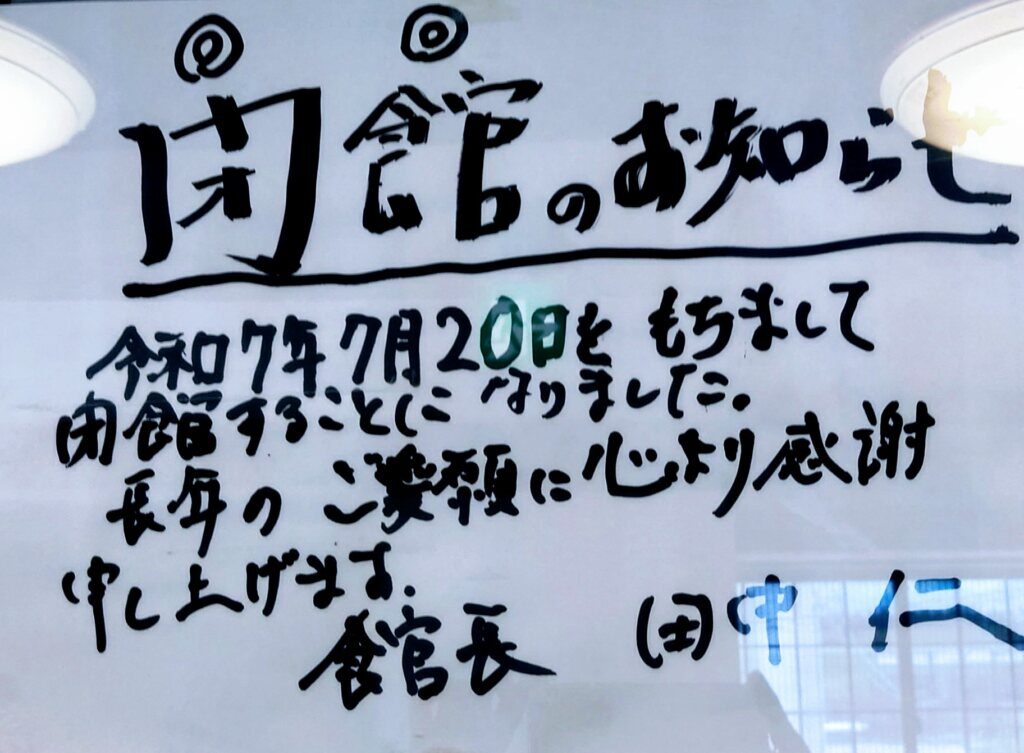 ◎ ◎
閉館のお知らせ
令和7年7月20日をもちまして
閉館することになりました。
長年のご愛顧に心より感謝
申し上げます.
館長 田中 仁